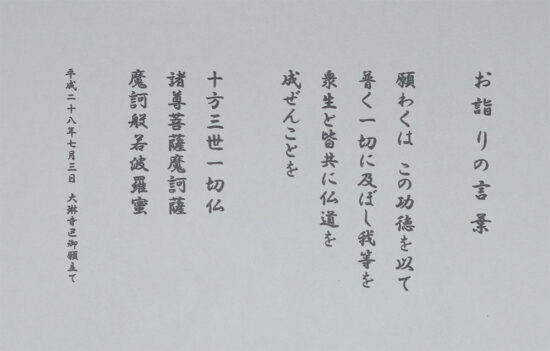 お詣りの言葉
願わくは この功徳を以て
普く一切に及ぼし我等を
衆生と皆共に仏道を
成ぜんことを
十方三世一切仏
諸尊菩薩魔訶薩
魔訶般若波羅蜜
平成二十八年七月三日 大琳寺